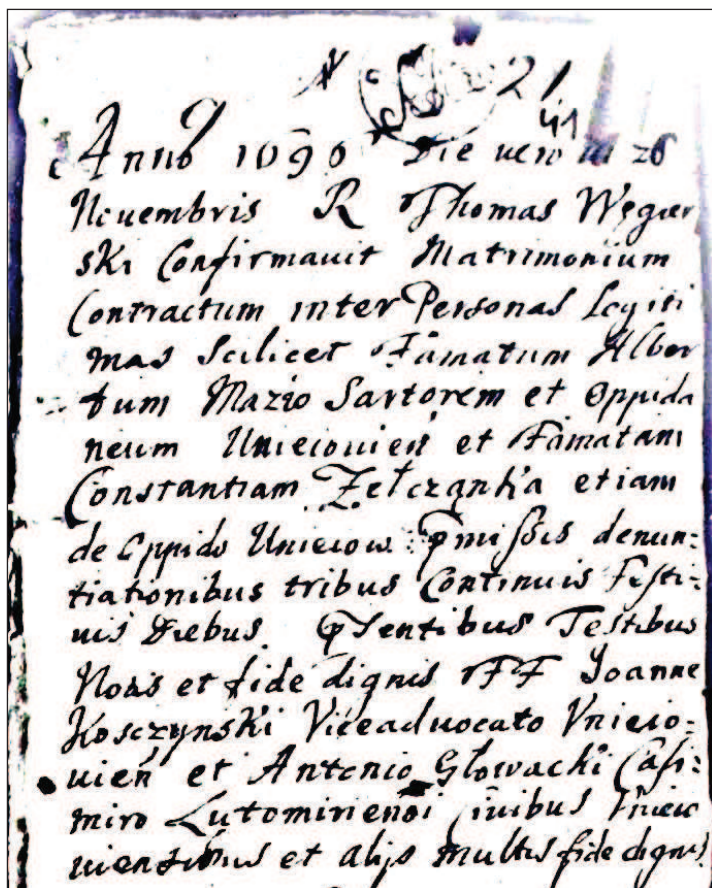 N 21
41
Anno 1690 Die vero 26
Nouembris R Thomas Węgier
ski Confirmauit Matrimonium
Contractum inter Personas Legiti
mas Scilicet Famatum Alber
tum Mazio Sartorem et Oppida
neum Unieiouień et Famatam
Constantiam etiam
de Oppido Unieiow pmissis denun:
tiationibus tribus Continuis Festi:
uis Diebus psentibus Testibus
Notis et fide dignis FF Joanne
Kosczynski Viceaduocato Vnieio:
uień et Antonio Głowacki Casi:
miro Lutomiriensi Ciuibus Vnieio
uiensibus et alijs multis fide dignis